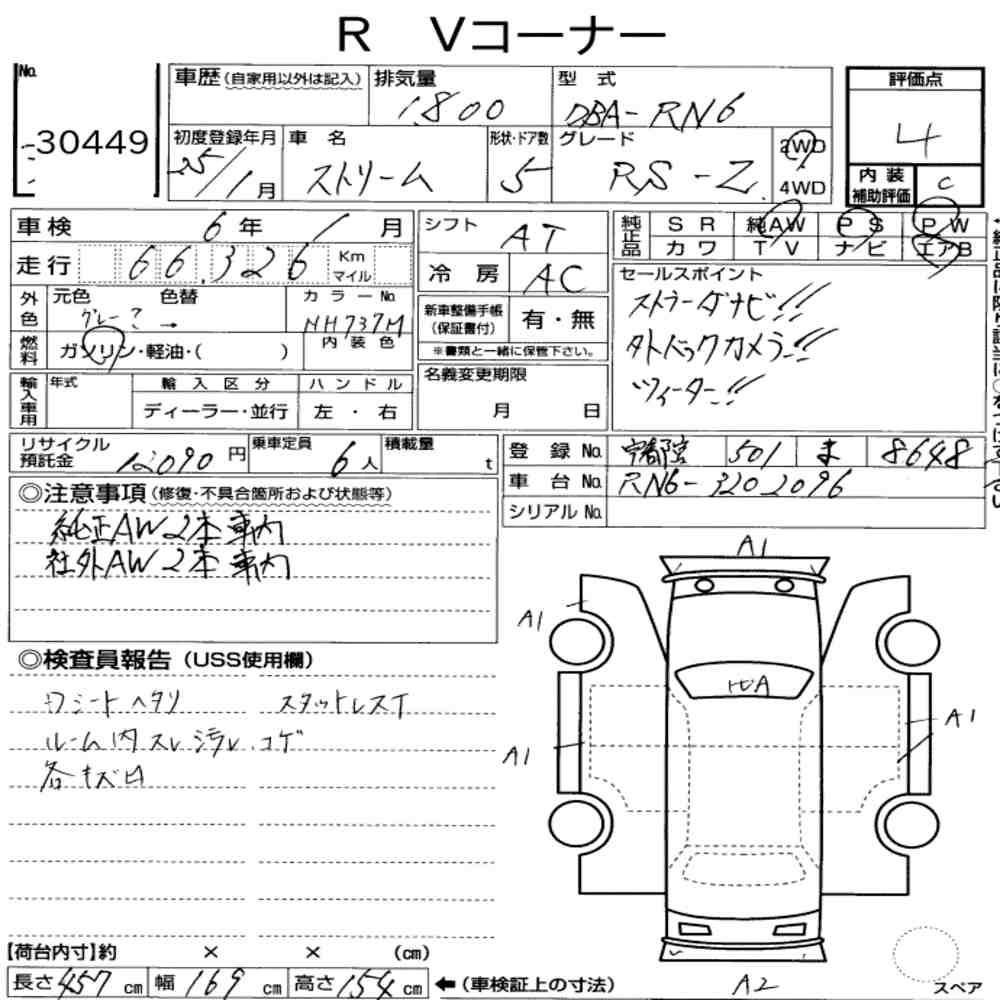 R Vコーナー
No.
30449
車歴(自家用以外は記入)
排気量
1800
型式
DBA-RN6
評価点
4
初度登録年月
25/1月
車名
ストリーム
形状・ドア数
5
グレード
RS-Z
2WD
4WD
内装
補助評価
C
車検 6年 1月
シフト AT
純正品
SR 純AW PS PW
カワ TV ナビ エアB
走行 66,326 Km
マイル
冷房 AC
セールスポイント
ストラーダナビ!!
外色
元色 色替 カラーNo.
グレー? → NH737M
新車整備手帳
(保証書付)
有・無
※書類と一緒に保管下さい。
燃料
ガソリン・軽油・( )
内装色
タトバックカメラー!!
ツィーター!!
名義変更期限
月 日
輸入車用
年式 輸入区分 ハンドル
ディーラー・並行 左・右
リサイクル
預託金
12090円
乗車定員
6人
積載量
t
登録No. 宇都宮 501 ま 8648
車台No. RN6-3202096
シリアルNo.
◎注意事項(修復・不具合箇所および状態等)
純正AW2本車内
社外AW2本車内
◎検査員報告(USS使用欄)
シートヘタリ スタットレスT
ルーム内スレ汚レ.コゲ
各キズ凹
A1
A1
A1
A1
A2
スペア
【荷台内寸】約 × × (cm)
長さ457cm 幅169cm 高さ154cm ←(車検証上の寸法)